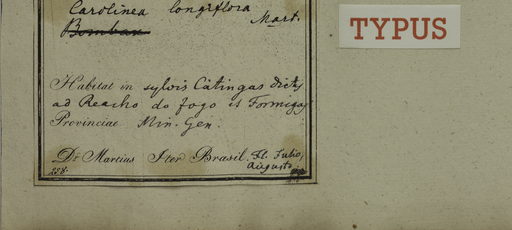 Carolinea longiflora
Mart.
Bombax
TYPUS
Habitat in sylvis Catingas dictis
ad Reacho do fogo et Formigas
Provinciae Min. Gen.
Dr. Martius Iter Brasil. Fl. Julio,
Augusto.